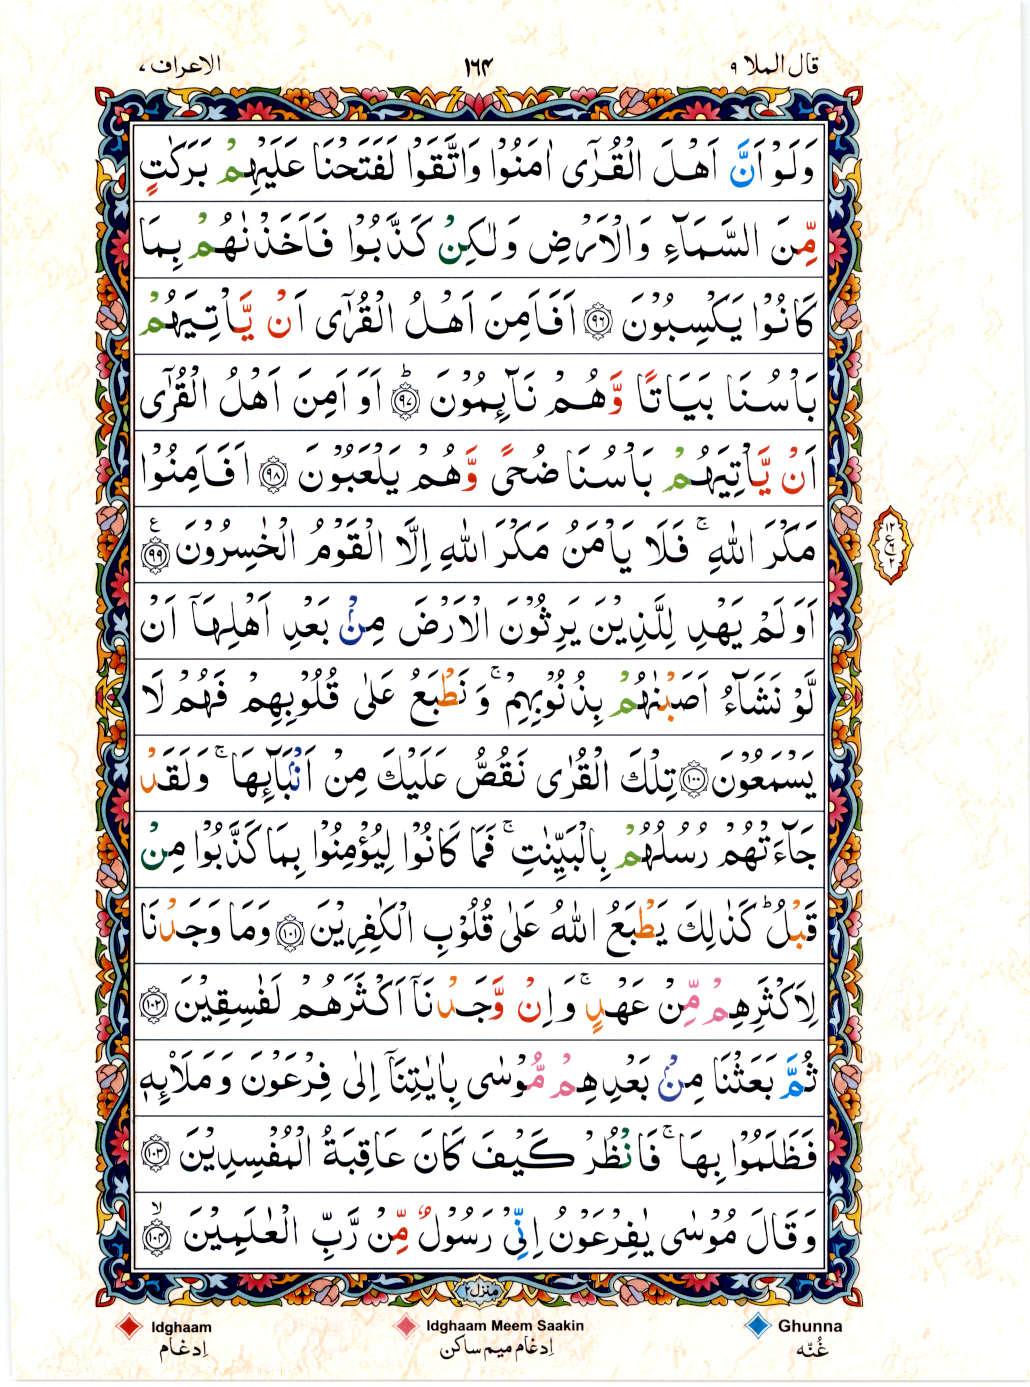 قال الملا ٩
١٦٤
الاعراف ٧
وَلَوْ اَنَّ اَهْلَ الْقُرٰٓى اٰمَنُوْا وَاتَّقَوْا لَفَتَحْنَا عَلَيْهِمْ بَرَكٰتٍ
مِّنَ السَّمَآءِ وَالْاَرْضِ وَلٰكِنْ كَذَّبُوْا فَاَخَذْنٰهُمْ بِمَا
كَانُوْا يَكْسِبُوْنَ ﴿٩٦﴾ اَفَاَمِنَ اَهْلُ الْقُرٰٓى اَنْ يَّاْتِيَهُمْ
بَاْسُنَا بَيَاتًا وَّهُمْ نَآئِمُوْنَ ؕ﴿٩٧﴾ اَوَ اَمِنَ اَهْلُ الْقُرٰٓى
اَنْ يَّاْتِيَهُمْ بَاْسُنَا ضُحًى وَّهُمْ يَلْعَبُوْنَ ﴿٩٨﴾ اَفَاَمِنُوْا
مَكْرَ اللّٰهِ ۚ فَلَا يَاْمَنُ مَكْرَ اللّٰهِ اِلَّا الْقَوْمُ الْخٰسِرُوْنَ ﴿٩٩﴾ ع
١٢
ع ٦
٢
اَوَلَمْ يَهْدِ لِلَّذِيْنَ يَرِثُوْنَ الْاَرْضَ مِنْۢ بَعْدِ اَهْلِهَاۤ اَنْ
لَّوْ نَشَآءُ اَصَبْنٰهُمْ بِذُنُوْبِهِمْ ۚ وَ نَطْبَعُ عَلٰى قُلُوْبِهِمْ فَهُمْ لَا
يَسْمَعُوْنَ ﴿١٠٠﴾ تِلْكَ الْقُرٰى نَقُصُّ عَلَيْكَ مِنْ اَنْۢبَآئِهَا ۚ وَلَقَدْ
جَآءَتْهُمْ رُسُلُهُمْ بِالْبَيِّنٰتِ ۚ فَمَا كَانُوْا لِيُؤْمِنُوْا بِمَا كَذَّبُوْا مِنْ
قَبْلُ ؕ كَذٰلِكَ يَطْبَعُ اللّٰهُ عَلٰى قُلُوْبِ الْكٰفِرِيْنَ ﴿١٠١﴾ وَمَا وَجَدْنَا
لِاَكْثَرِهِمْ مِّنْ عَهْدٍ ۚ وَ اِنْ وَّجَدْنَاۤ اَكْثَرَهُمْ لَفٰسِقِيْنَ ﴿١٠٢﴾
ثُمَّ بَعَثْنَا مِنْۢ بَعْدِهِمْ مُّوْسٰى بِاٰيٰتِنَاۤ اِلٰى فِرْعَوْنَ وَ مَلَا۟ئِهٖ
فَظَلَمُوْا بِهَا ۚ فَانْظُرْ كَيْفَ كَانَ عَاقِبَةُ الْمُفْسِدِيْنَ ﴿١٠٣﴾
وَقَالَ مُوْسٰى يٰفِرْعَوْنُ اِنِّيْ رَسُوْلٌ مِّنْ رَّبِّ الْعٰلَمِيْنَ ۙ﴿١٠٤﴾
منزل ٢
Idghaam
اِدغام
Idghaam Meem Saakin
اِدغام میم ساکن
Ghunna
غُنّه